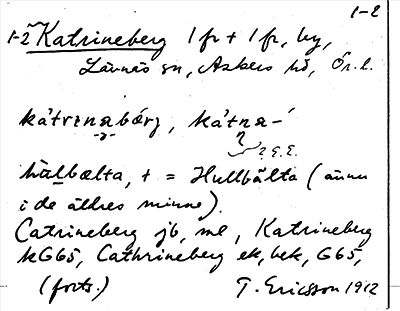 1-2
1-2 Katrineberg 1 fr + 1 fr, by,
Lännäs sn, Askers hd, Ör. l.
kátrɪnabárj, kátna-´
? G.E.
hàlbælta, + = Hullbälta (ännu
i de äldres minne).
Catrineberg jb, ml, Katrineberg
kG65, Cathrineberg ek, bek, G65,
(forts.) T. Ericsson 1912